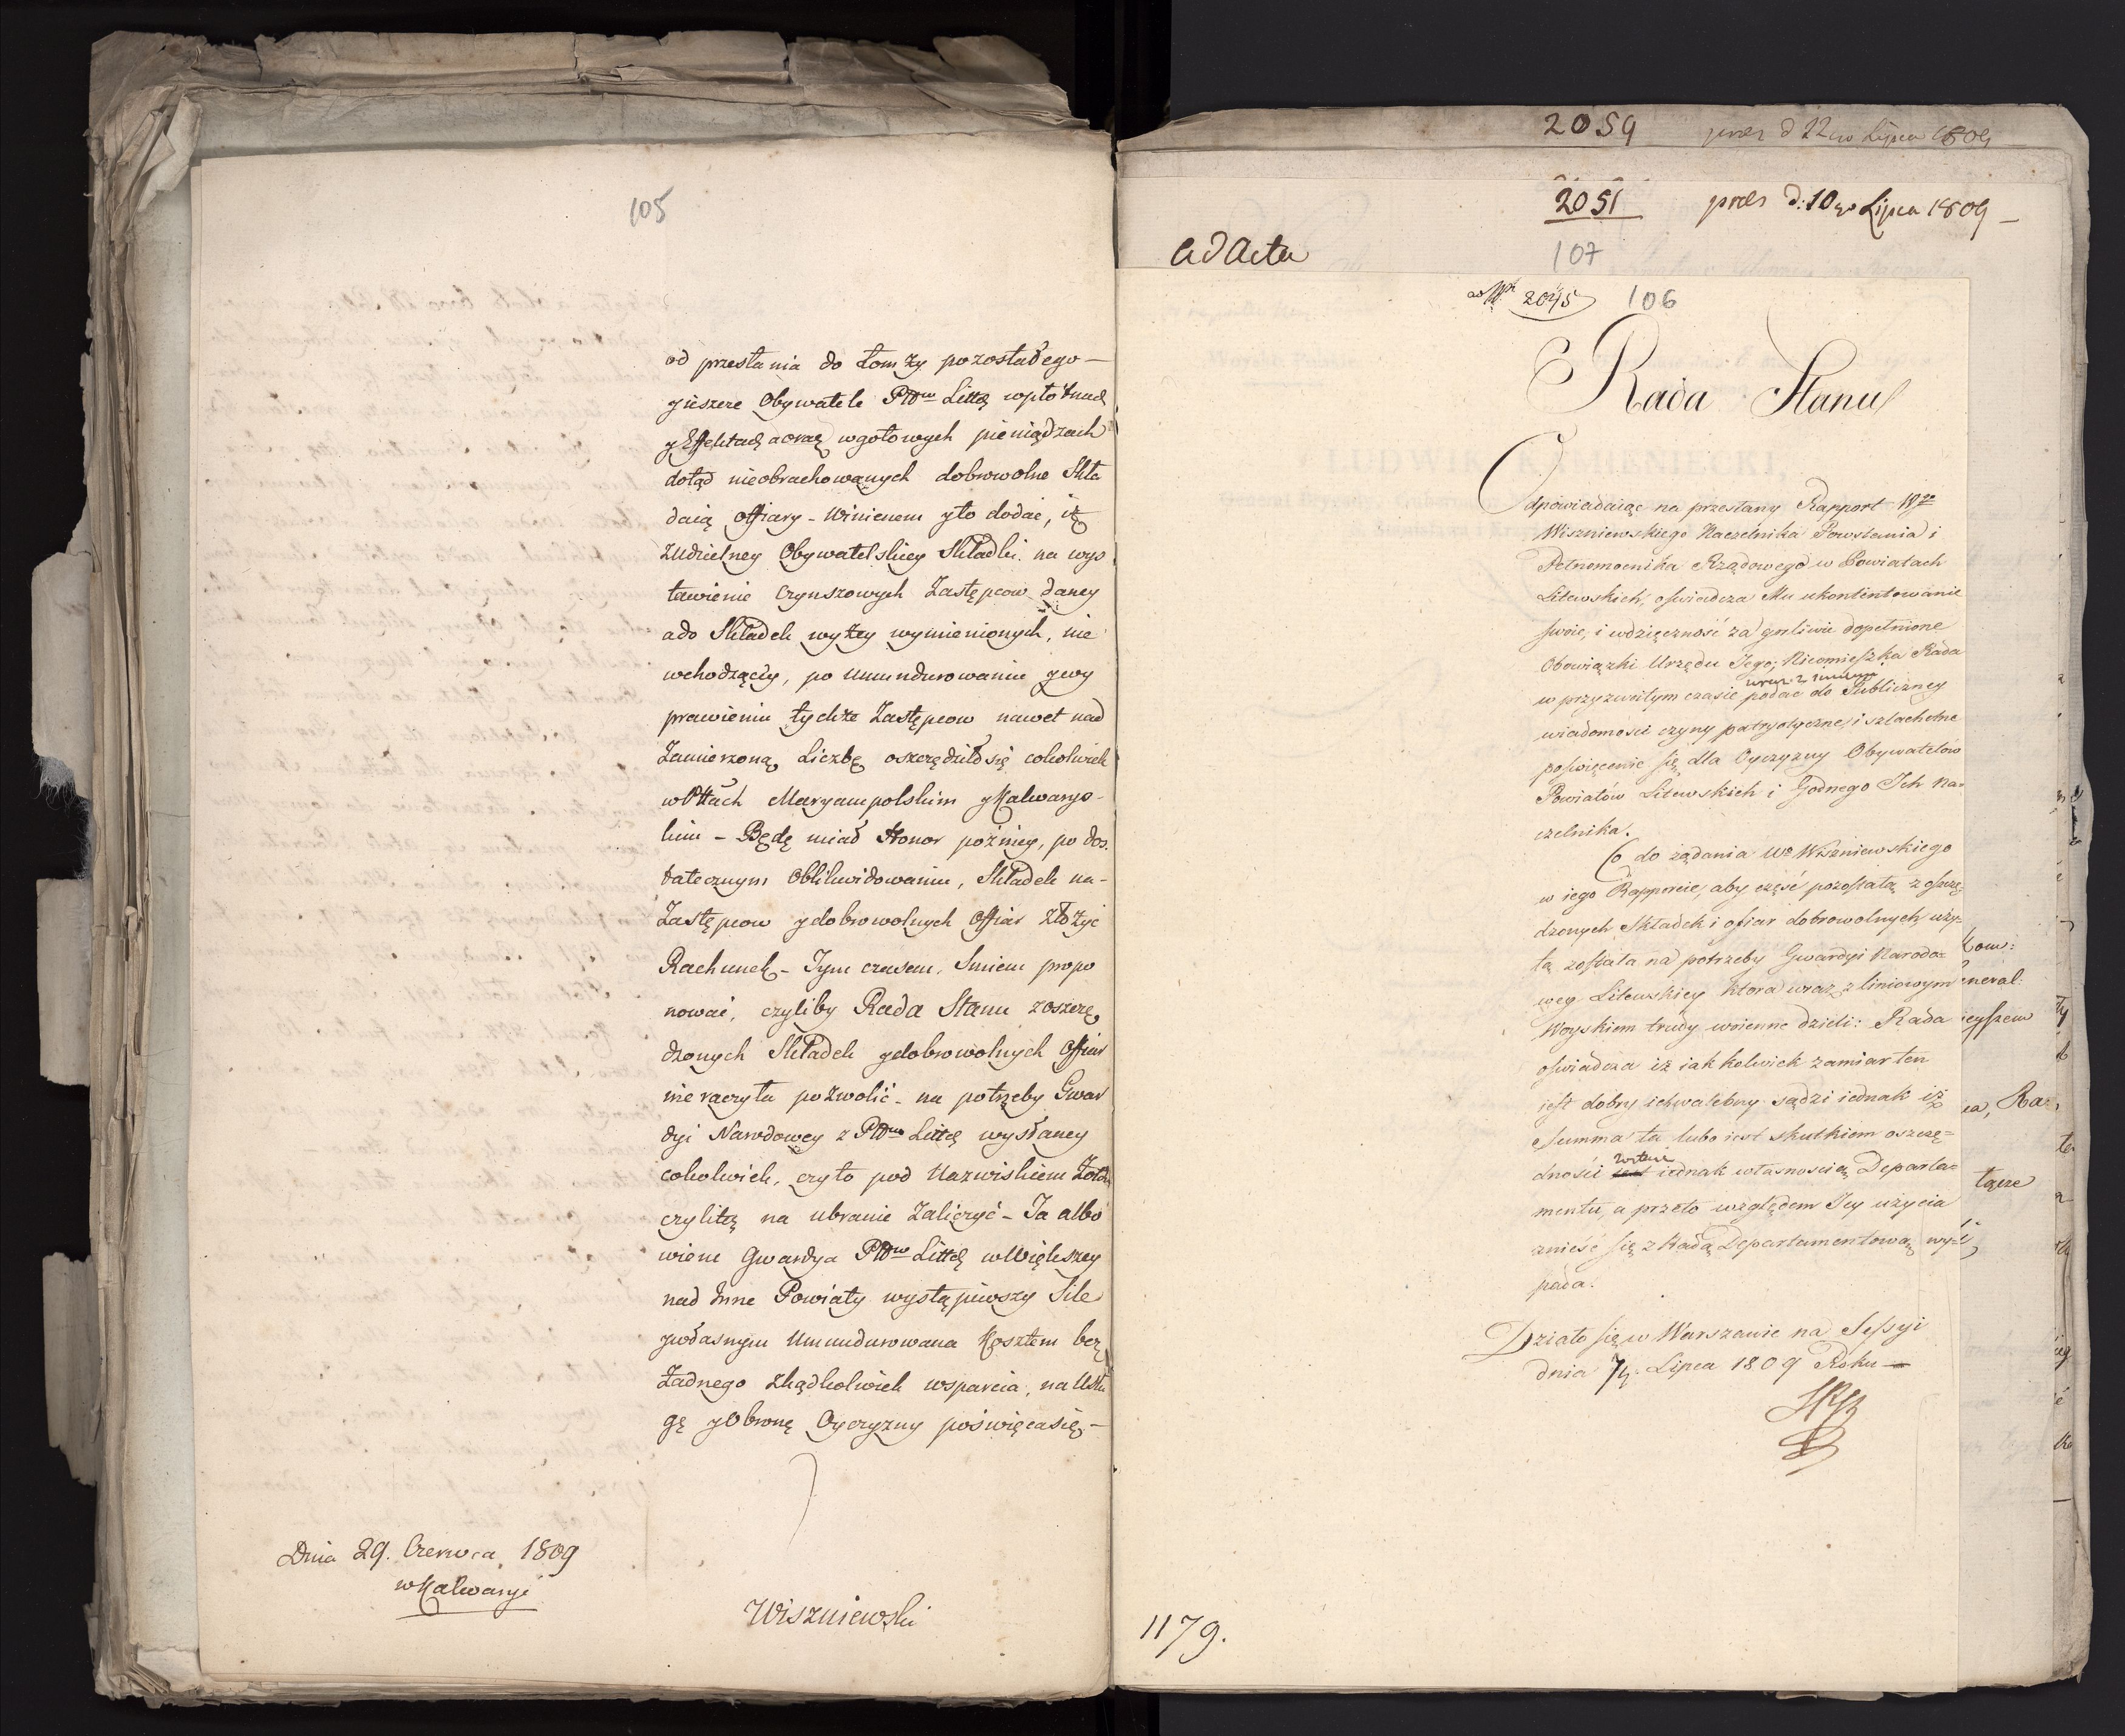 105
od przesłania do Łomży pozostałego —
y ieszcze Obywatele Pttow Littch w płótnach
y Effektach a oraz w gotowych pieniądzach
dotąd nieobrachowanych dobrowolne Skła
daią offiary - Winienem y to dodać, iż
z udzielney Obywatelskiey Składki na wys
tawienie Czynszowych Zastępcow daney
a do Składek wyżey wymienionych, nie
wchodzącey, po Umundurowaniu y wy
prawieniu tychże Zastępcow nawet nad
Zamierzoną Liczbę oszczędziło się cokolwiek
w Pttach Maryampolskim y Kalwarys-
kim - Będę miał Honor pózniey, po dos-
tatecznym Oblikwidowaniu, Składek na-
Zastępcow y dobrowolnych Offiar złożyć
Rachunek - Tym czasem, Smiem propo
nować, czyliby Rada Stanu z oszczę
dzonych Składek y dobrowolnych Offiar
nie raczyła pozwolić - na potrzeby Gwar
dyi Narodowey z Pttow Littch wysłaney
cokolwiek, czy to pod Nazwiskiem Żołdu
czyli też na ubranie Zaliczyć - Ta albo
wiem Gwardya Pttow Littch w Większey
nad Inne Powiaty wystąpiwszy Sile
y własnym Umundurowana Kosztem bez
Żadnego zkądkolwiek wsparcia, na Usłu
gę y Obronę Oyczyzny poświęca się -
Dnia 29. Czerwca 1809
w Kalwaryi
Wiszniewski
2059 prez d 22go Lipca 1809
2051 prez d: 10go Lipca 1809 —
ad Acta
107
ad Nr 2045 106
Rada Stanu
Odpowiadaiąc na przesłany Rapport Wgo
Wiszniewskiego Naczelnika Powstania i
Pełnomocnika Rządowego w Powiatach
Litewskich, oswiadcza Mu ukontentowanie
swoie, i wdzięczność za gorliwie dopełnione
Obowiązki Urzędu Jego; Nieomieszka Rada
w przyzwoitym czasie podać do Publiczney
wiadomości czyny patryotyczne, i szlachetne
poswięcenie się dla Oyczyzny Obywatelów
Powiatów Litewskich i Godnego Ich Na=
czelnika.
Co do żądania Wo Wiszniewskiego
w iego Rapporcie, aby część pozostałą z oszczę=
dzonych Składek i ofiar dobrowolnych uży=
tą została na potrzeby Gwardyi Narodo=
wey Litewskiey ktora wraz z liniowym
Woyskiem trudy woienne dzieli: Rada
oswiadcza iż iakkolwiek zamiar ten
iest dobry i chwalebny sądzi iednak iż
Summa ta lubo iest skutkiem oszczę=
dności iednak własnoscią Departa=
mentu, a przeto względem Jey użycia
znieść się z Radą Departamentową wy=
pada.
Działo się w Warszawie na Sessyi
dnia 7go Lipca 1809 Roku —
1179.